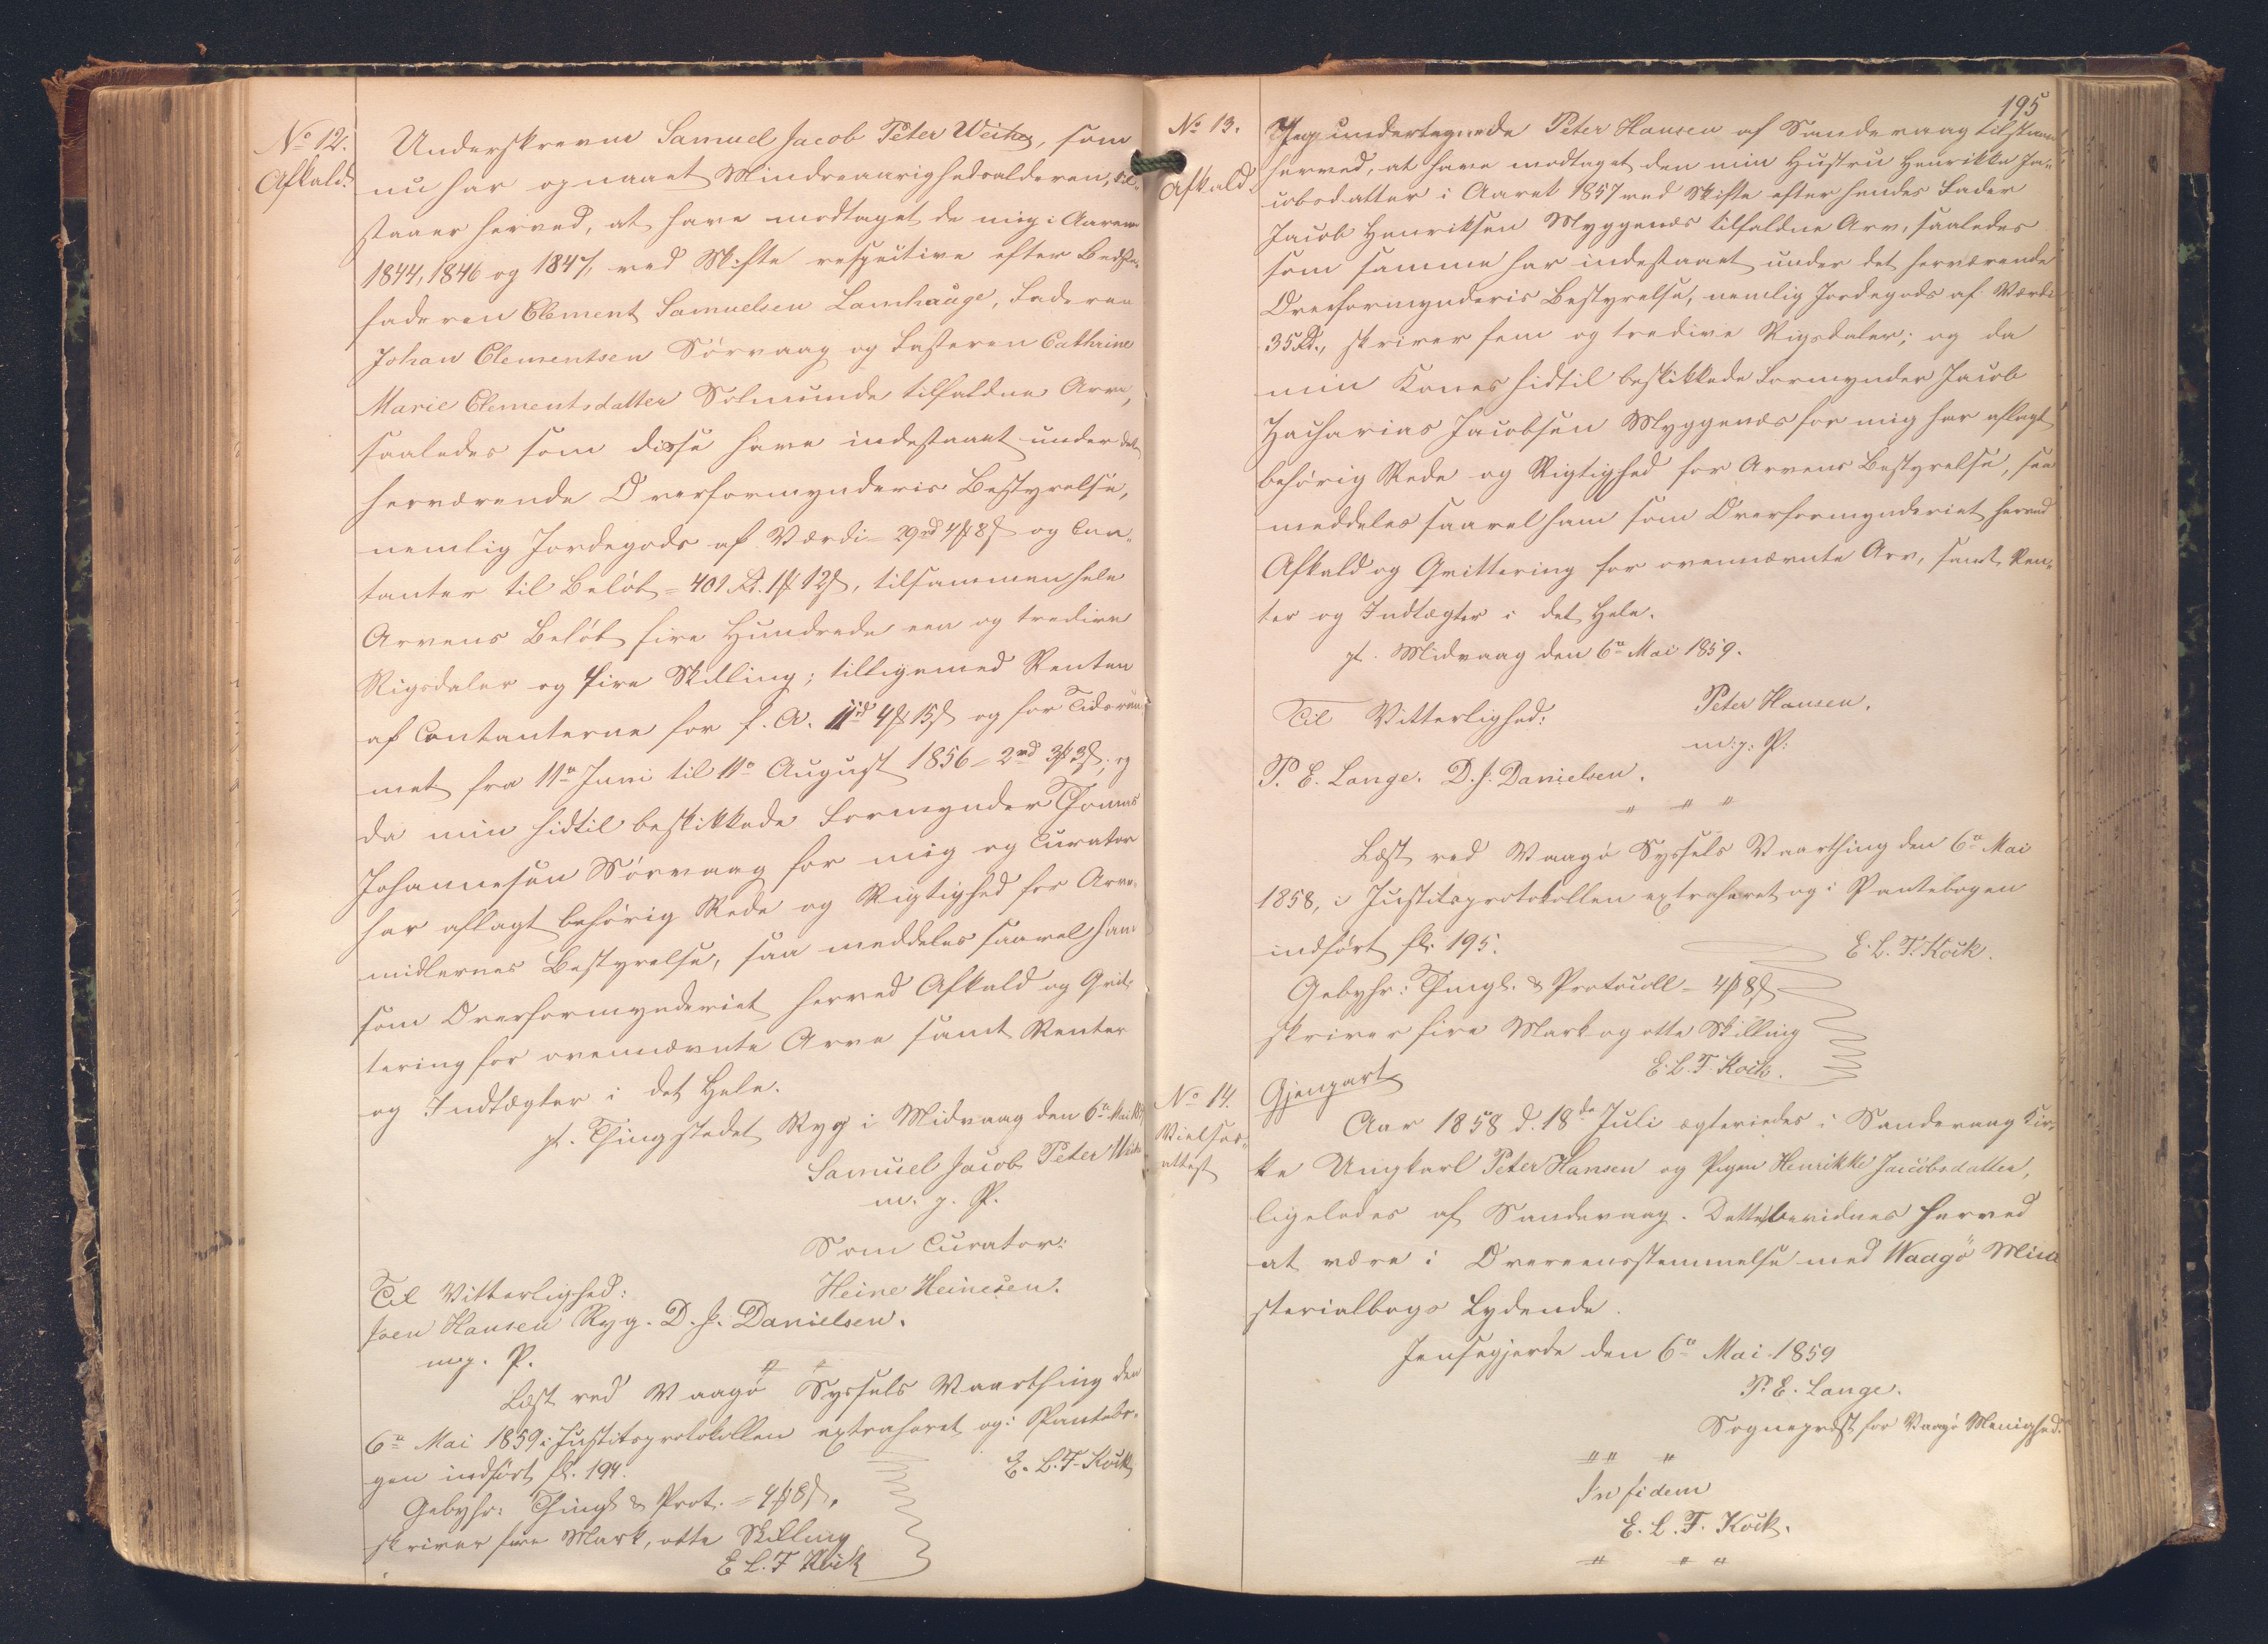 No 12.
Afkald.
Underskrevne Samuel Jacob Peter Weihe, som
nu har opnaaet Mindreaarighedsalderen, til-
staaer herved, at have modtaget de mig i Aarene
1844, 1846 og 1847, ved Skifte respective efter Bedste-
faderen Clement Samuelsen Lamhauge, Faderen
Johan Clementsen Sörvaag og Fasteren Cathrine
Marie Clementsdatter Solmunde tilfaldne Arve,
saaledes som disse have indestaaet under det
herværende Overformynderis Bestyrelse,
nemlig Jordegods af Værdi = 29rd 4 ẞ 8 ẞ og Con-
tanter til Beløb = 401 Rd. 1 ẞ 12 ẞ, tilsammen hele
Arvens Beløb fire Hundrede een og tredive
Rigsdaler og fire Skilling; tilligemed Renten
af Contanterne for f. A. 11rd 4 ẞ 15 ẞ og for Tidsrum-
met fra 11te Juni til 11te August 1856 = 2rd 3 ẞ 3 ẞ; og
da min hidtil beskikkede Formynder Thomas
Johannesen Sörvaag for mig og Curator
har aflagt behørig Rede og Rigtighed for Arve-
midlernes Bestyrelse, saa meddeles saavel ham
som Overformynderiet herved Afkald og Qvit-
tering for ovennævnte Arve samt Renter
og Indtægter i det Hele.
pt. Thingstedet Ryg i Midvaag den 6te Mai 1859
Samuel Jacob Peter Weihe
m. p. P.
Som Curator:
Til Vitterlighed: Heine Heinesen.
Joen Hansen Ryg. D. J. Danielsen.
m. p. P.
Læst ved Vaagø Syssels Vaarthing den
6te Mai 1859 i Justitsprotokollen extraheret og i Pantebo-
gen indført fl. 194.
E. L. T. Kock
Gebyhr: Thingl. & Prot. = 4 ẞ 8 ẞ,
skriver fire Mark, otte Skilling
E. L. T Kock
195
No 13.
Afkald.
Jeg undertegnede Peter Hansen af Sandevaag tilstaaer
herved, at have modtaget den min Hustru Henrikke Ja-
cobsdatter i Aaret 1857 ved Skifte efter hendes Fader
Jacob Henriksen Myggenæs tilfaldne Arv, saaledes
som samme har indestaaet under det herværende
Overformynderis Bestyrelse, nemlig Jordegods af Værdi
35 Rd., skriver fem og tredive Rigsdaler; og da
min Kones hidtil beskikkede Formynder Jacob
Zacharias Jacobsen Myggenæs for mig har aflagt
behørig Rede og Rigtighed for Arvens Bestyrelse, saa
meddeles saavel ham som Overformynderiet herved
Afkald og Qvittering for ovennævnte Arv, samt Ren-
ter og Indtægter i det Hele.
pt. Midvaag den 6te Mai 1859.
Til Vitterlighed: Peter Hansen.
m: p: P:
P. E. Lange. D. J. Danielsen.
Læst ved Vaagø Syssels Vaarthing den 6te Mai
1858, i Justitsprotokollen extraheret og i Pantebogen
indført fl. 195.
E. L. T. Kock.
Gebyhr: Thingl. & Protocoll = 4 ẞ 8 ẞ
skriver fire Mark og otte Skilling
E. L. T. Kock.
No 14.
Vielses-
attest
Gjenpart
Aar 1858 d. 18de Juli ægteviedes i Sandevaag Kir-
ke Ungkarl Peter Hansen og Pigen Henrikke Jacobsdatter,
ligeledes af Sandevaag. Dette bevidnes herved
at være i Overeensstemmelse med Waagø Mini
sterialbogs Lydende.
Jensagjerde den 6te Mai 1859
P. E. Lange.
Sognepræst for Vaagø Menighed.
In fidem
E. L. T. Kock.